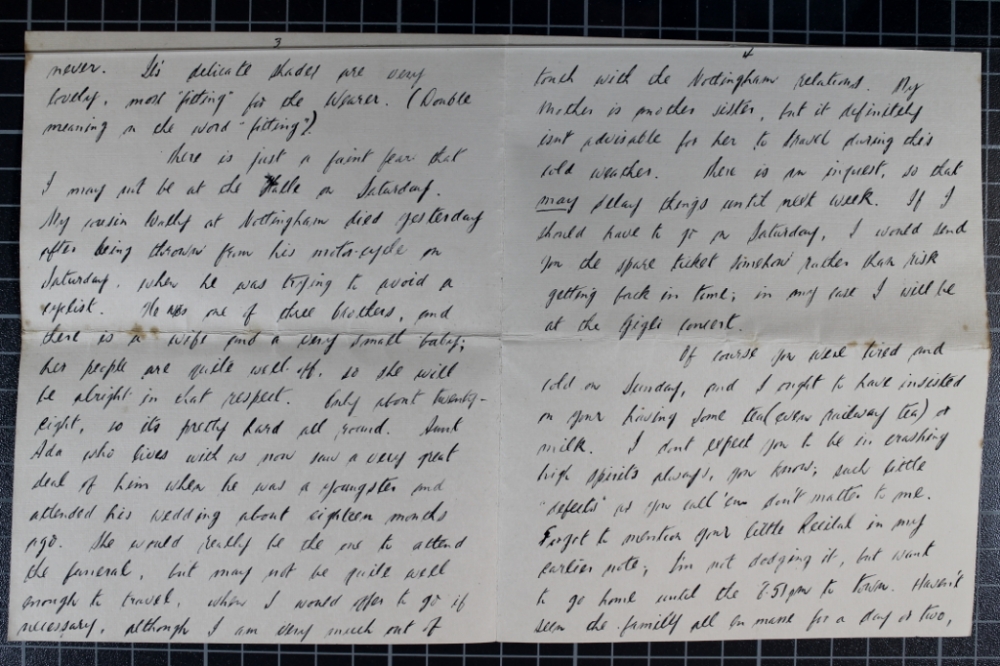 3
never. Its delicate shades are very
lovely, most "fitting" for the wearer. (Double
meaning in the word "fitting").
There is just a faint fear that
I may not be at the Halle on Saturday.
My cousin Wally at Nottingham died yesterday
after being thrown from his motor-cycle on
Saturday, when he was trying to avoid a
cyclist. He was one of three brothers, and
there is a wife and a very small baby;
her people are quite well off, so she will
be alright in that respect. Only about twenty-
eight, so its pretty hard all round. Aunt
Ada who lives with us now saw a very great
deal of him when he was a youngster and
attended his wedding about eighteen months
ago. She would really be the one to attend
the funeral, but may not be quite well
enough to travel, when I would offer to go if
necessary, although I am very much out of
4
touch with the Nottingham relations. My
Mother is another sister, but it definitely
isn't advisable for her to travel during this
cold weather. There is an inquest, so that
may delay things until next week. If I
should have to go on Saturday, I would send
you the spare ticket somehow rather than risk
getting back in time; in any case I will be
at the Gigli concert.
Of course you were tired and
cold on Sunday, and I ought to have insisted
on your having some tea (even railway tea) or
milk. I dont expect you to be in crashing
high spirits always, you know; such little
"defects" as you call 'em don't matter to me.
Forgot to mention your little Recital in my
earlier note; I'm not dodging it, but want
to go home until the 7.51 pm to town. Haven't
seen the family all en masse for a day or two,